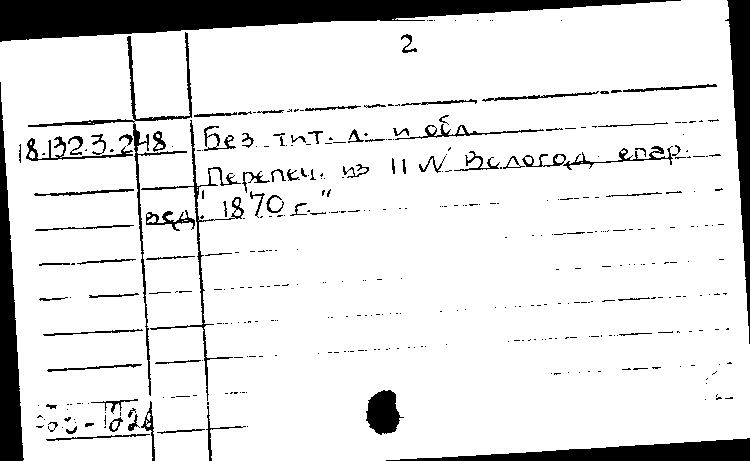 2
18.132.3.248 Без тит. л. и обл.
Перепеч. из 11 № Вологод. епар.
вед. 1870 г."